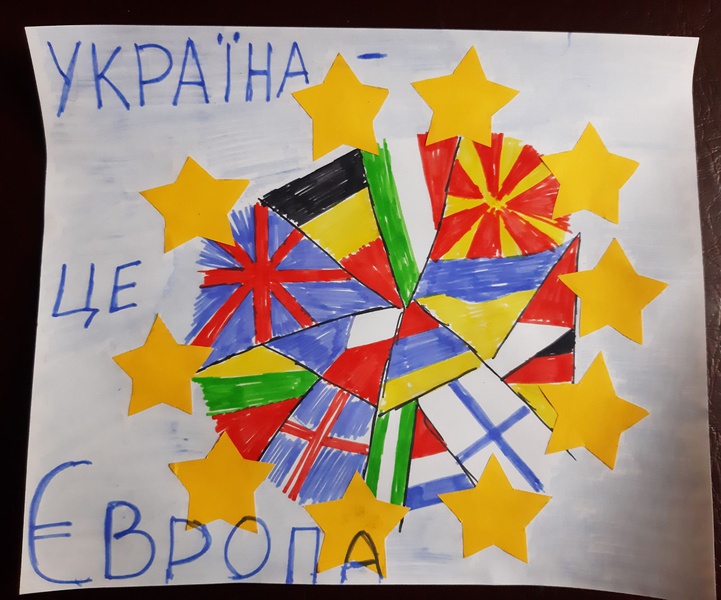 УКРАЇНА -
ЦЕ
ЄВРОПА